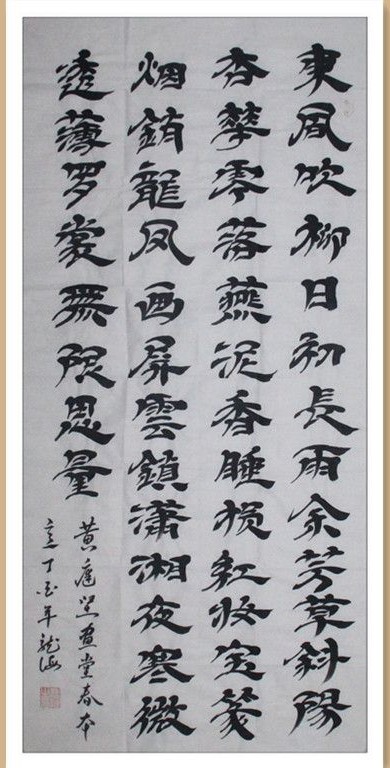 東風吹柳日初長雨余芳草斜陽
杏華零落燕泥香睡损紅妆宝篆
烟銷龍凤画屏雲鎮瀟湘夜寒微
透薄罗裳無限思量
黄庭坚畫堂春本
意丁酉年龙海